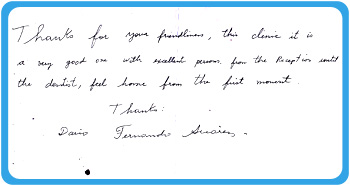 Thanks for your friendliness, this clinic it is
a very good one with excellent persons. from the Reception until
the dentist, feel home from the first moment.
Thanks:
Dario Fernando Suárez.